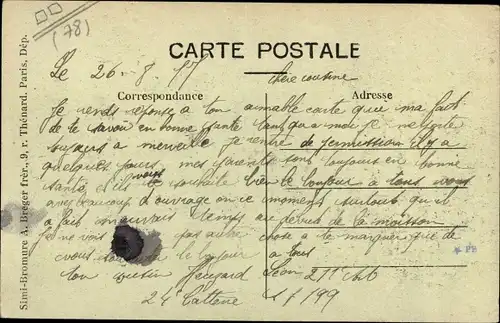 (78)
CARTE POSTALE
Le 26-8-17
chère cousine
Correspondance
Adresse
Je rends réponse a ton aimable carte que ma fait
de te savoir en bonne santé tant qua moi je me porte
toujours a merveille je rentre de permission il y a
quelques jours mes parents sont toujours en bonne
santé et ils vous souhaite bien le bonjour a tous vous
avez beaucoup d'ouvrage en ce moment surtout qu'il
a fait mauvais temps au début de la moisson
Je ne vois pas autre chose a te marquer que de
vous le bonjour a tous
ton cousin Léon
21e
24e Batterie
Simi-Bromure A. Breger frér., 9, r. Thénard. Paris, Dép.